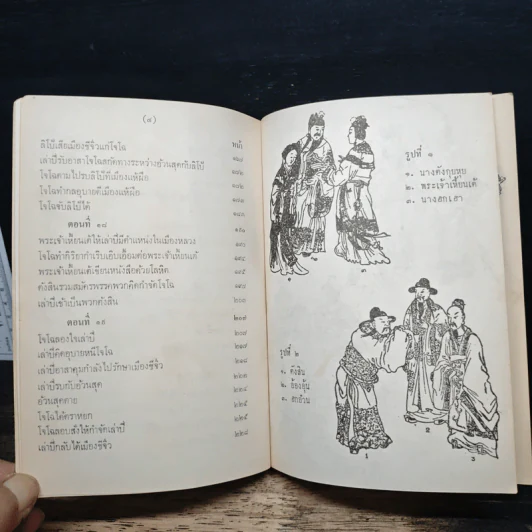 (๗)
หน้า
ลิโป้เสียเมืองชีจิ๋วแก่โจโฉ
เล่าปี่รับอาสาโจโฉสกัดทางระหว่างอ้วนสุดกับลิโป้
โจโฉตามไปรบลิโป้ที่เมืองแห้ฝือ
โจโฉทำกลอุบายที่เมืองแห้ฝือ
โจโฉจับลิโป้ได้
ตอนที่ ๑๘
พระเจ้าเหี้ยนเต้ให้เล่าปี่มีตำแหน่งในเมืองหลวง
โจโฉทำกิริยากำเริบเอิบเอื้อมต่อพระเจ้าเหี้ยนเต้
พระเจ้าเหี้ยนเต้เขียนหนังสือด้วยโลหิต
ตังสินรวมสมัครพรรคพวกคิดกำจัดโจโฉ
เล่าปี่เข้าเป็นพวกตังสิน ๒๐๒
ตอนที่ ๑๙ ๒๐๗
โจโฉลองใจเล่าปี่ ๒๐๗
เล่าปี่คิดอุบายหนีโจโฉ ๒๑๗
เล่าปี่อาสาคุมกำลังไปรักษาเมืองชีจิ๋ว
เล่าปี่รบกับอ้วนสุด
อ้วนสุดตาย
โจโฉได้ตราหยก ๒๒๕
โจโฉลอบสั่งให้กำจัดเล่าปี่ ๒๒๘
เล่าปี่กลับได้เมืองชีจิ๋ว
รูปที่ ๑
๑. นางตังกุยหุย
๒. พระเจ้าเหี้ยนเต้
๓. นางฮกเฮา
๑ ๒ ๓
รูปที่ ๒
๑. ตังสิน
๒. อ้องอุ้น
๓. ฮกอ้วน
1 2 ๓